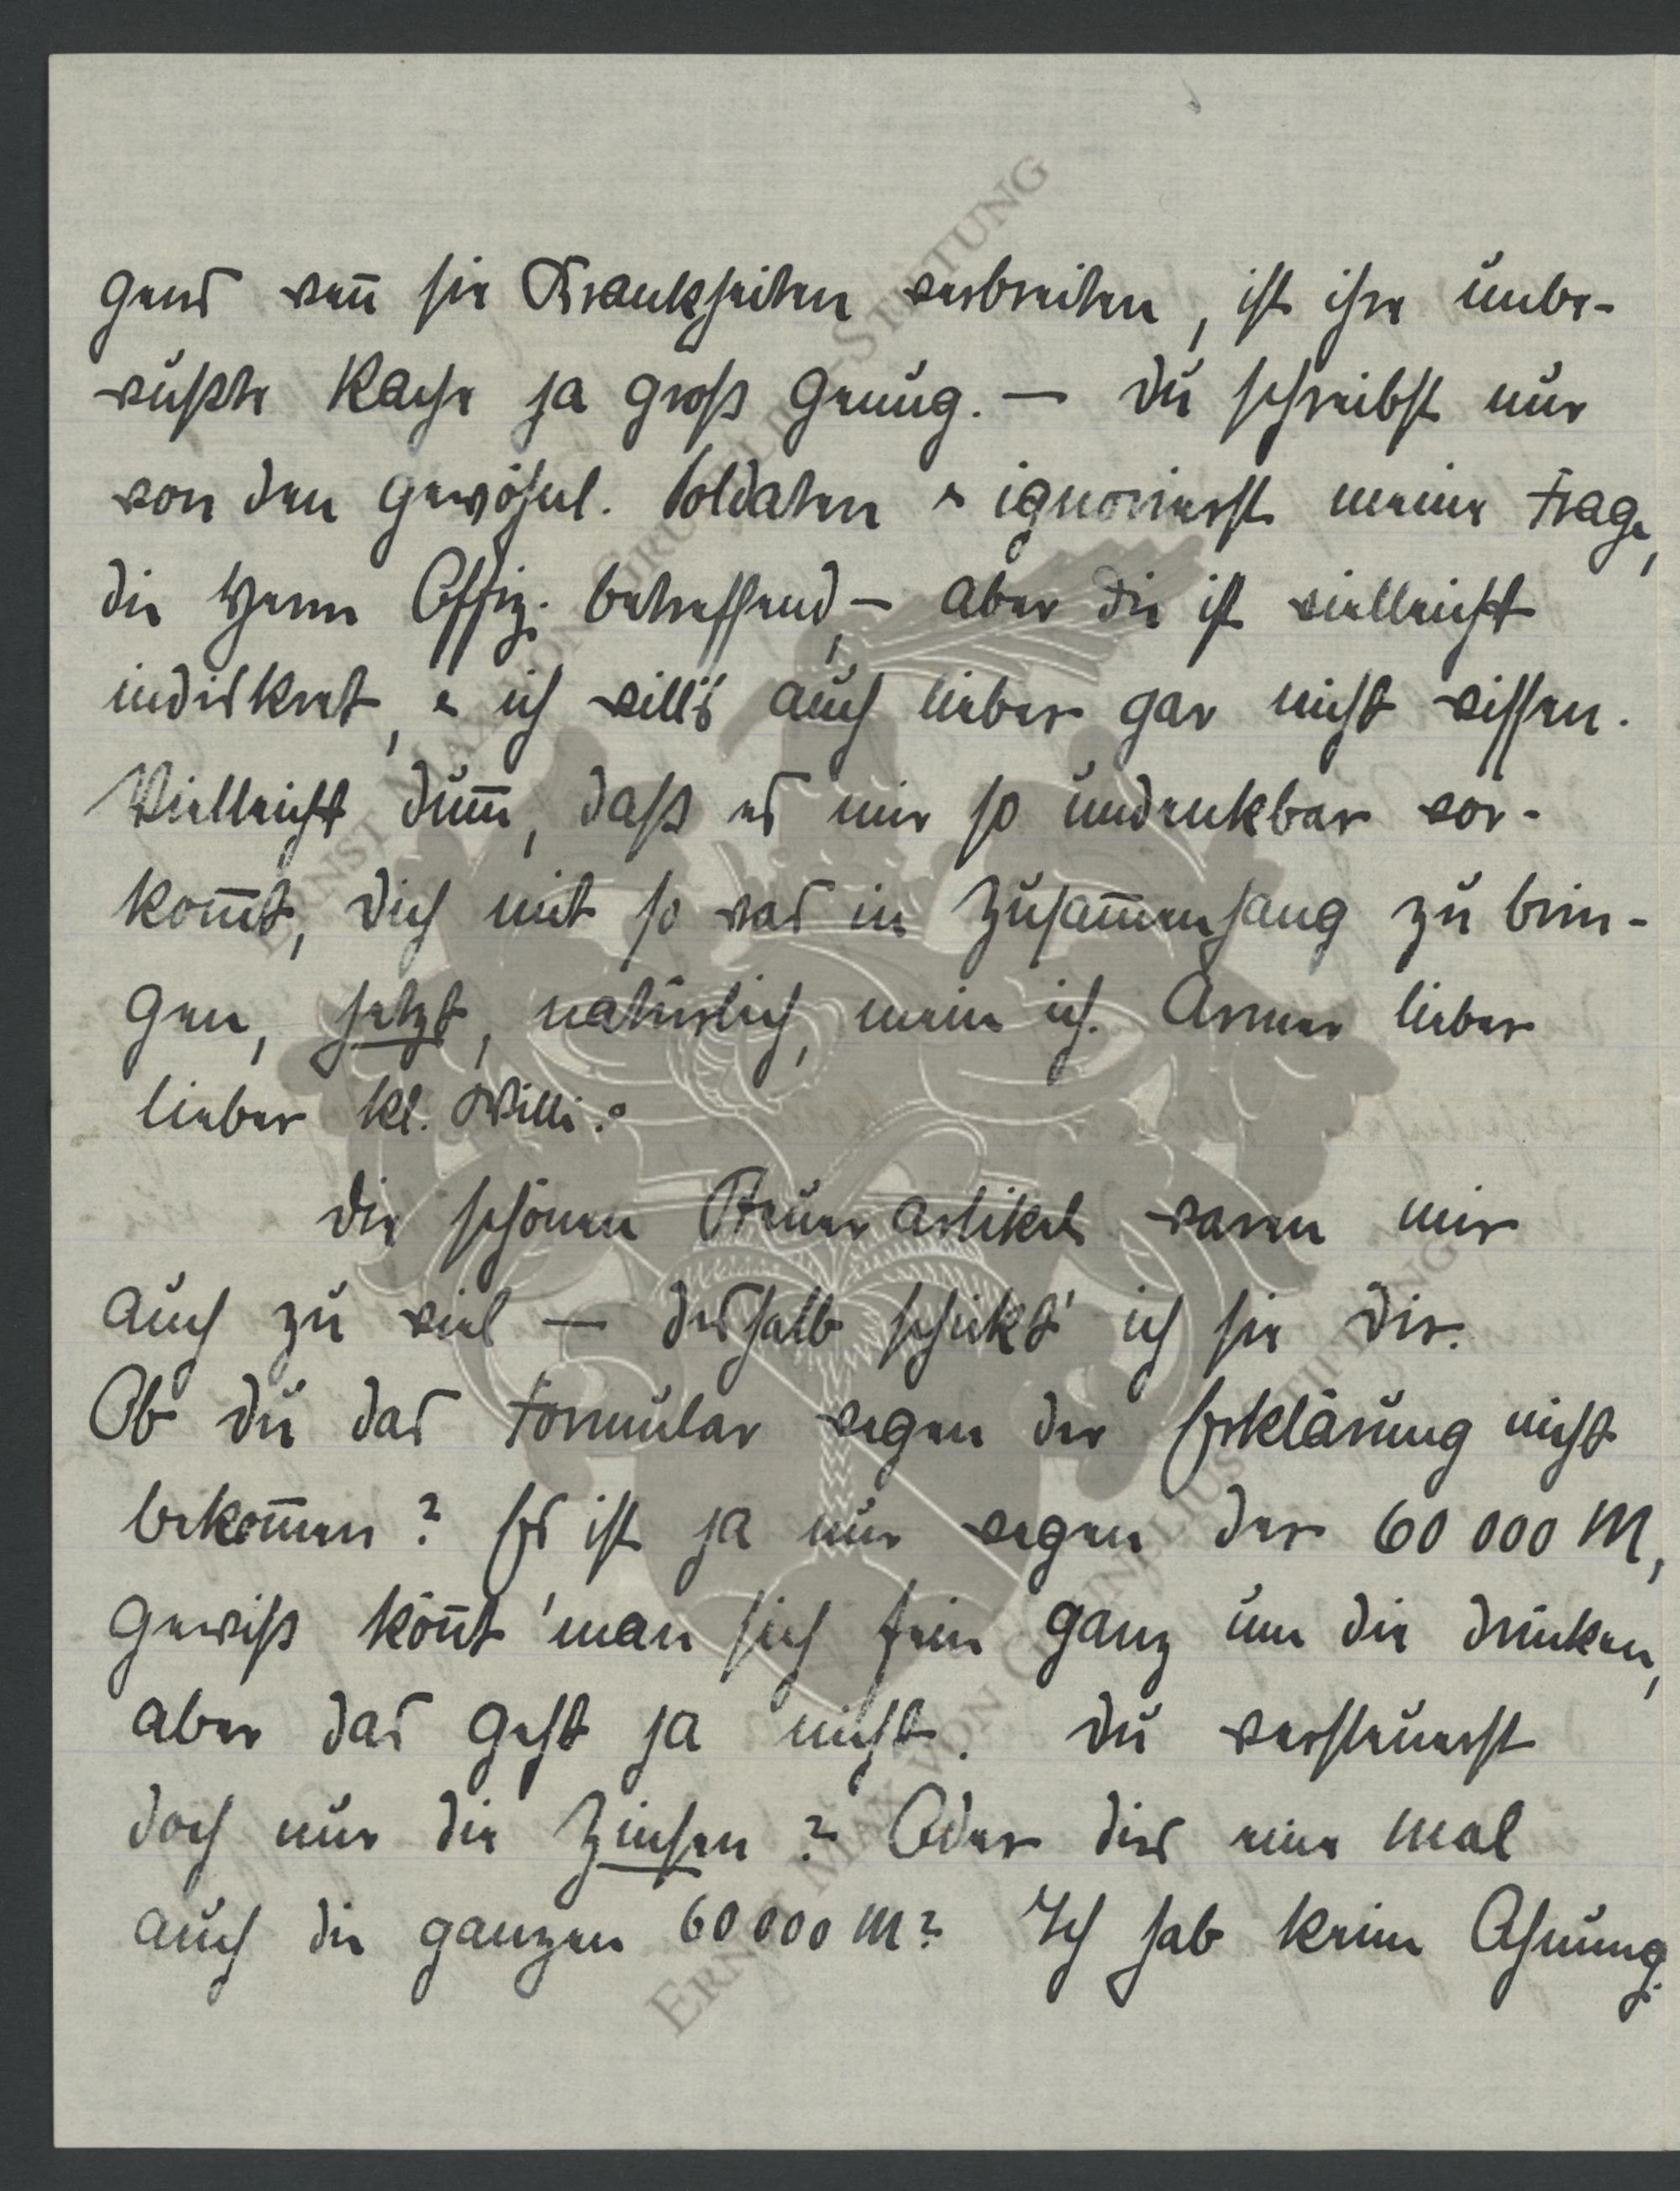 gens wen̄ sie Krankheiten verbreiten, ist ihre unbe-
wußte Rache ja groß genug. — Du schreibst nur
von den gewöhnl. Soldaten & ignorierst meine Frage,
die Herrn Offiz. betreffend, — aber die ist vielleicht
indiskret, & ich will's auch lieber gar nicht wissen.
Vielleicht dum̄, daß es mir so undenkbar vor-
kom̄t, Dich mit so was in Zusam̄enhang zu brin-
gen, jetzt, natürlich, mein ich. Armer lieber
lieber kl. Willi.
Die schönen Steuerartikel waren mir
auch zu viel — deshalb schickt' ich sie Dir.
Ob Du das Formular wegen der Erklärung nicht
bekom̄en? Es ist ja nur wegen der 60 000 M,
gewiß kön̄t' man sich fein ganz um die drücken,
aber das geht ja nicht. Du versteuerst
doch nur die Zinsen? Oder dies eine Mal
auch die ganzen 60 000 M? Ich hab keine Ahnung.
ERNST MAX VON GRUNELIUS-STIFTUNG
ERNST MAX VON GRUNELIUS-STIFTUNG